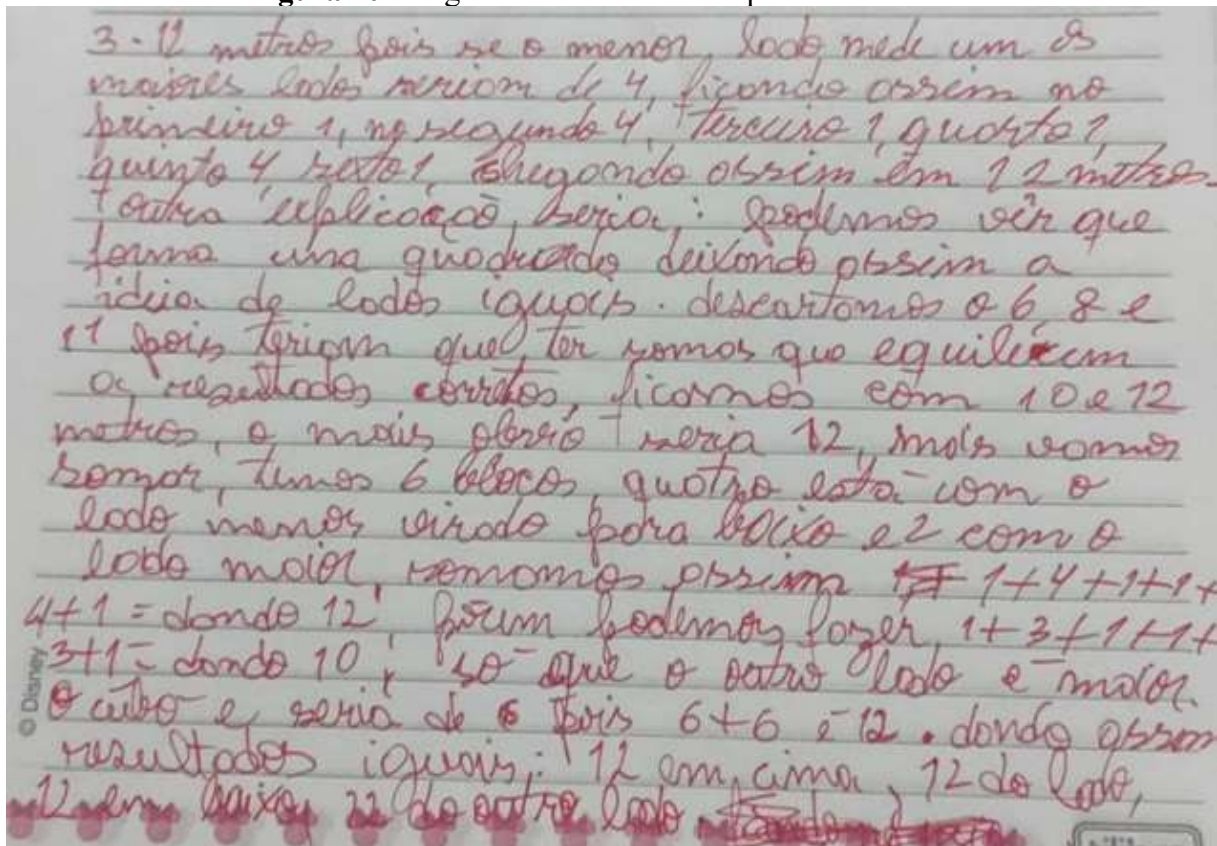 3-12 metros pois se o menor lado mede um os
maiores lados seriam de 4, ficando assim no
primeiro 1, no segundo 4, terceiro 1, quarto 1,
quinto 4 sexto 1, chegando assim em 12 metros.
outra explicação, seria: podemos vêr que
forma uma quadrado deixando assim a
ideia de lados iguais. descartamos o 6, 8 e
11 pois teriam que ter somas que equilibram
os resultados corretos, ficamos com 10 e 12
metros, o mais obvio seria 12, mais vamos
somar, temos 6 blocos, quatro está com o
lado menor virado para baixo e 2 com o
lado maior, somamos assim 1+4+1+1+
4+1 = dando 12, porem podemos fazer, 1+3+1+1+
3+1= dando 10, só que o outro lado é maior.
O cubo e seria de 6 pois 6+6 é 12. dando assim
resultados iguais: 12 em cima, 12 do lado,
12 em baixo, 12 do outro lado.
© Disney